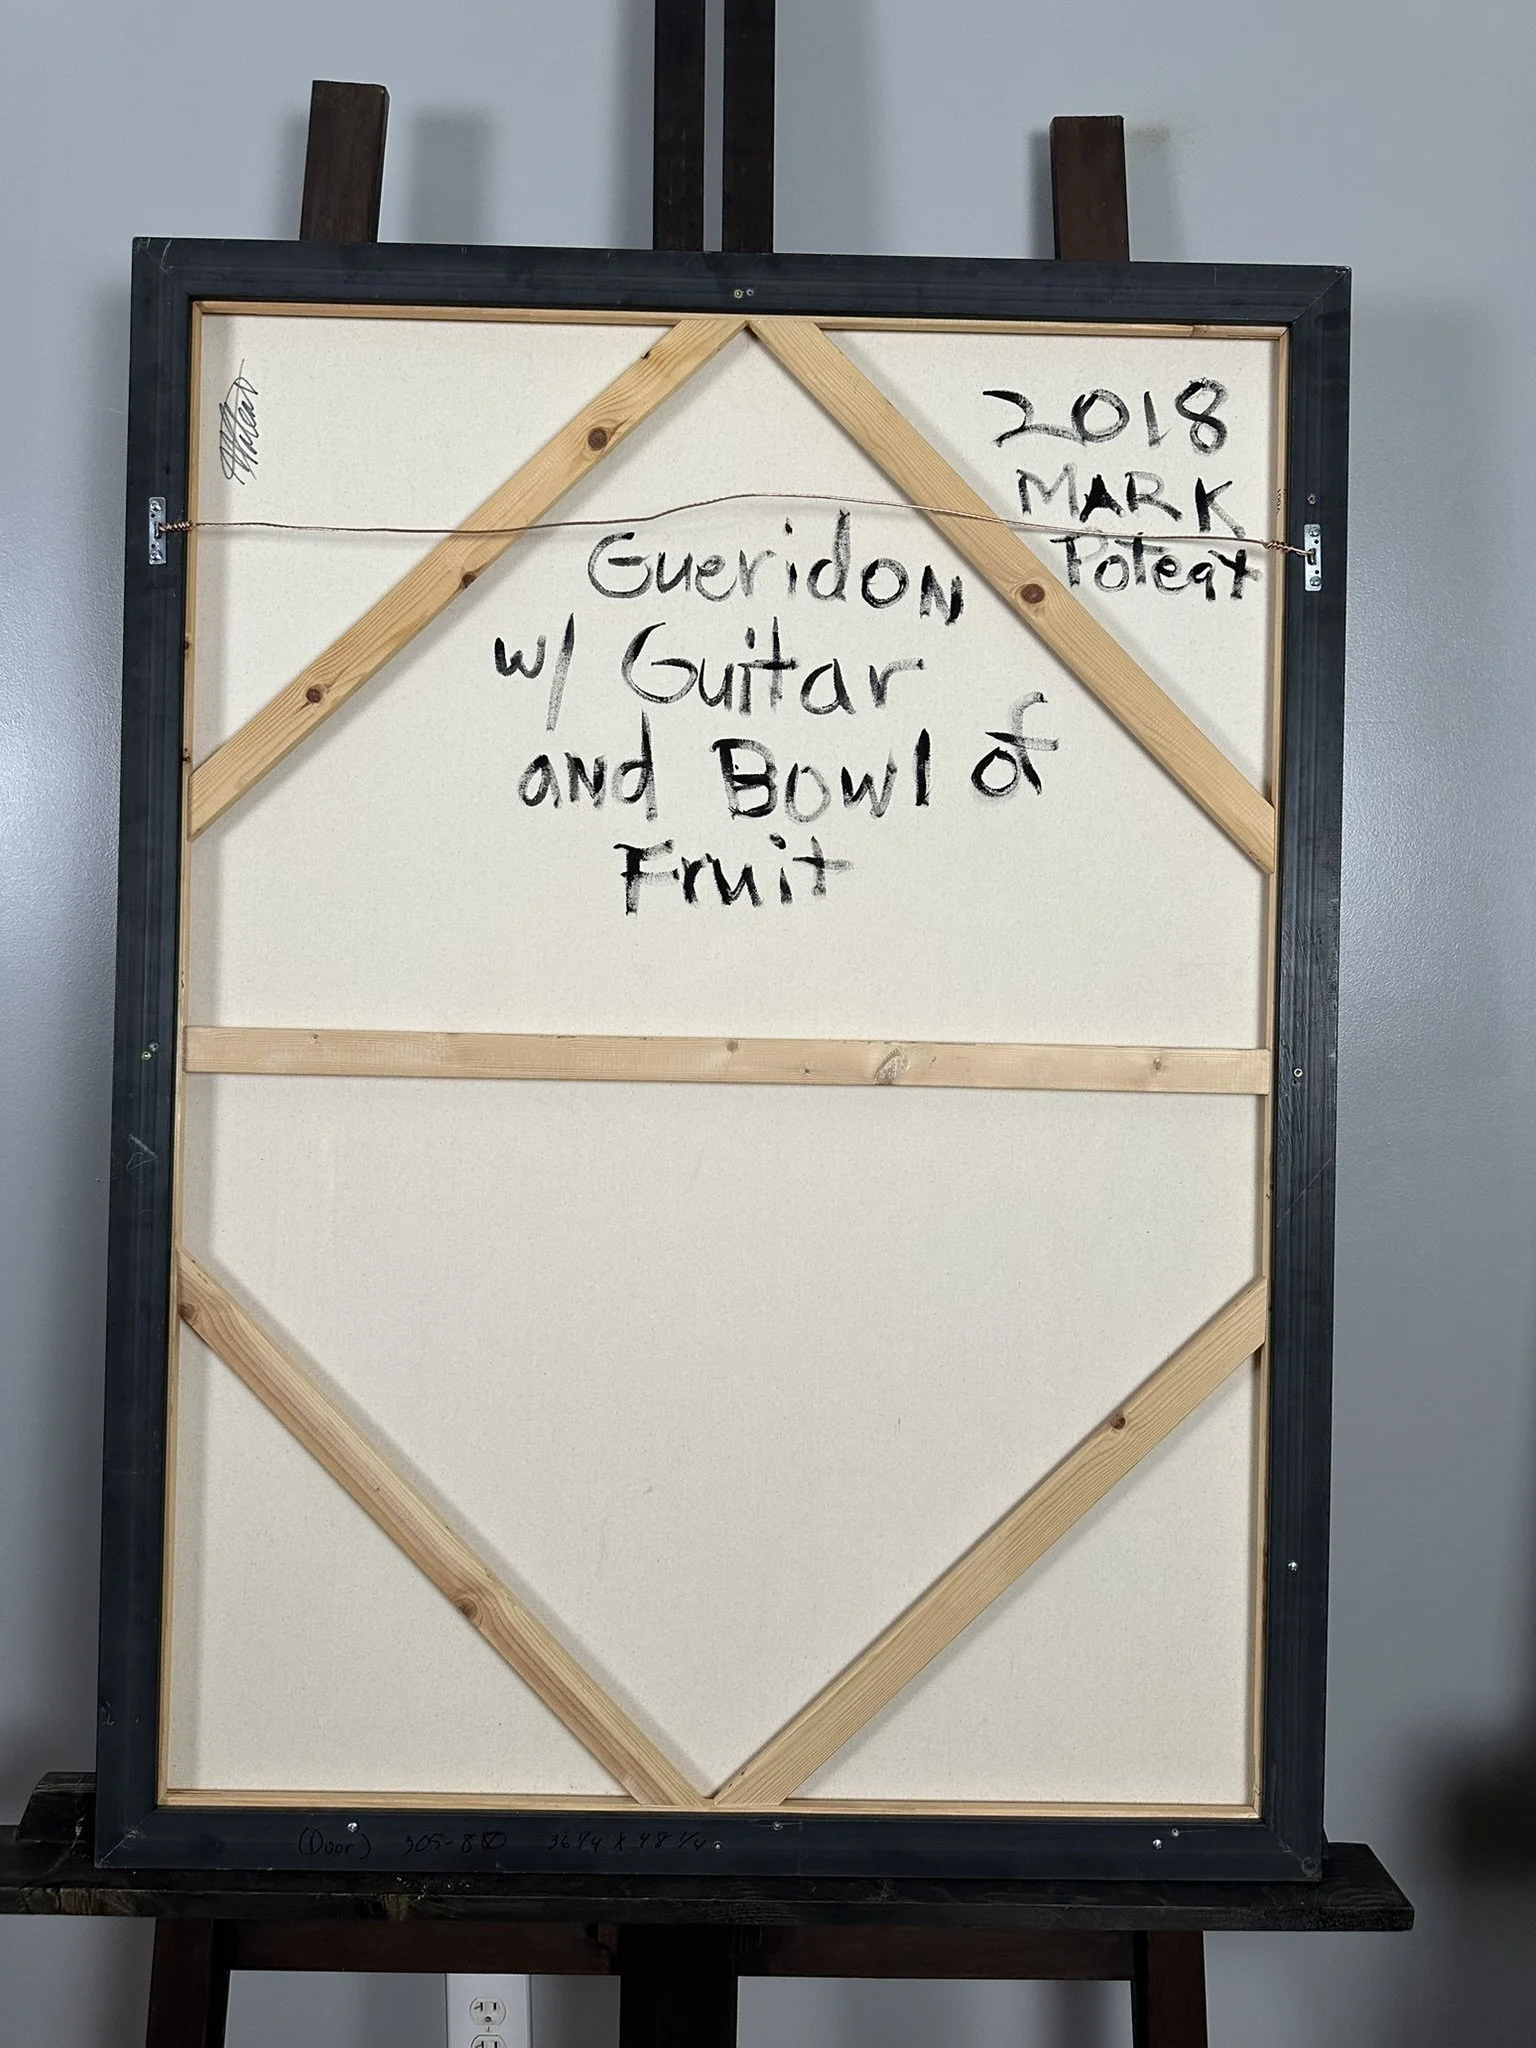 2018
MARK
Poteat
Gueridon
w/ Guitar
and Bowl of
Fruit
(Door) 305-880 36 1/4 X 48 1/4